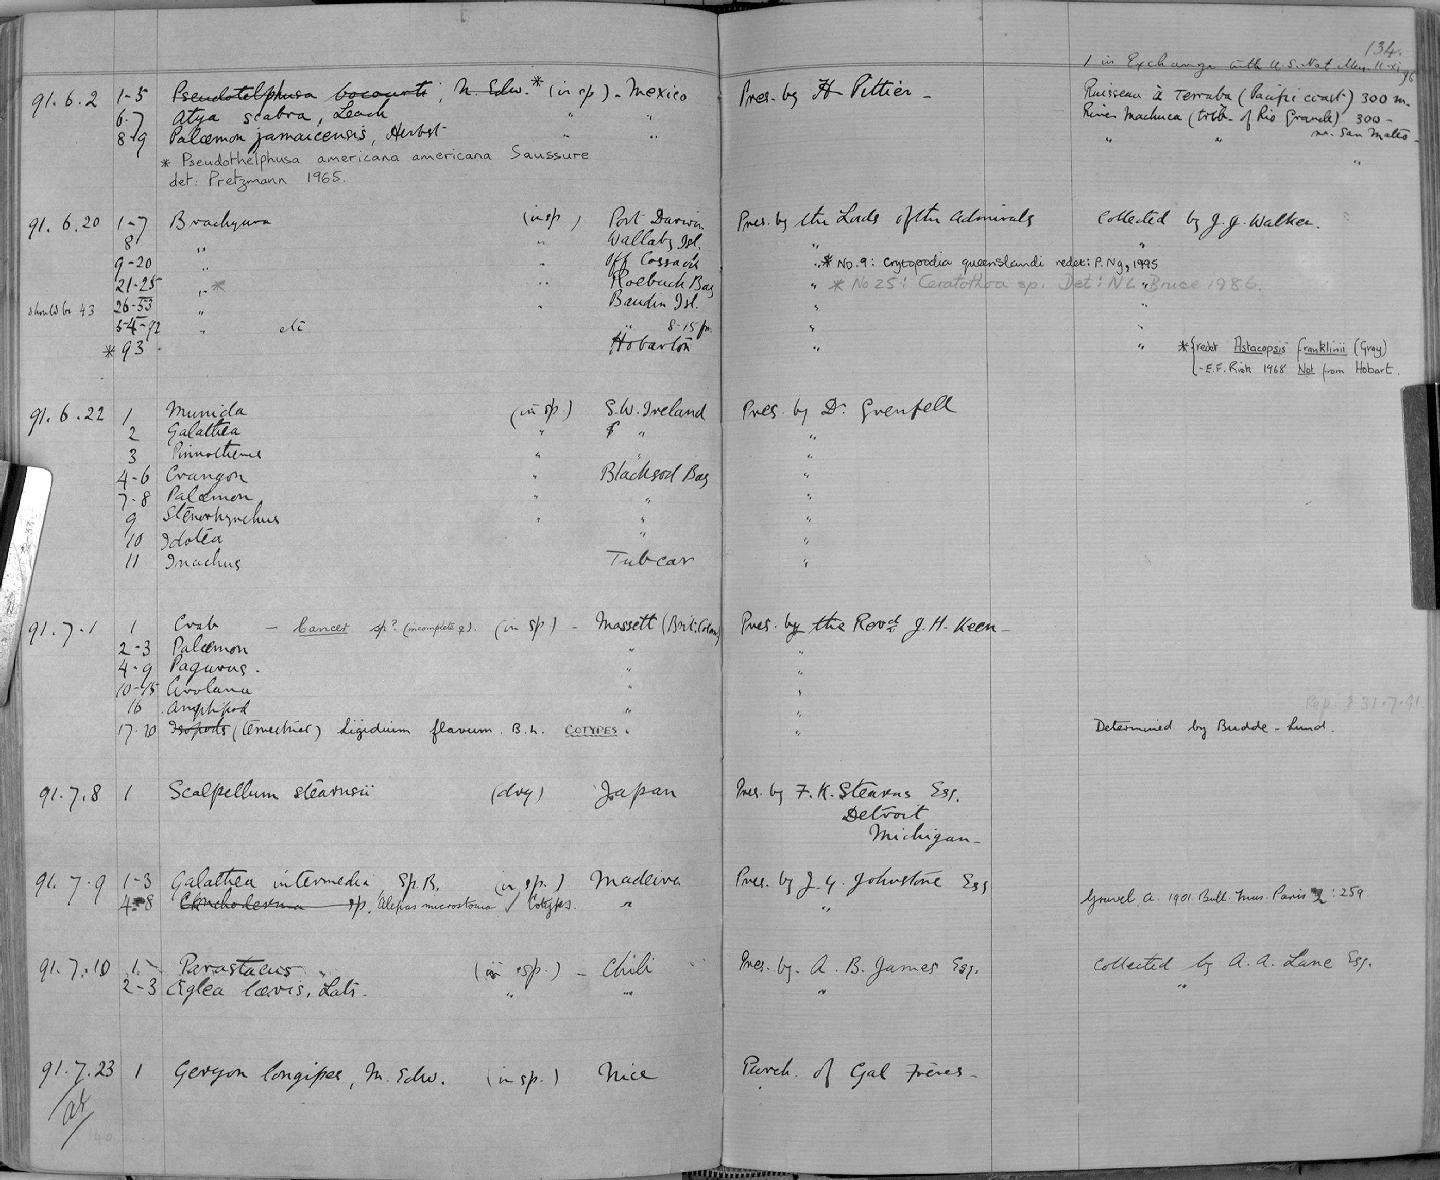 134.
1 in Exchange with U.S. Nat. Mus.
91.6.2 1-5 Pseudotelphusa bocourti, M. Edw. * (in sp) - Mexico Pres. by H. Pittier - Ruisseau à Terraba (Pacific coast) 300 m.
6.7 Atya scabra, Leach " " River Machuca (trib. of Rio Grande) 300 -
8-9 Palæmon jamaicensis, Herbst " " " " nr. San Mateo -
* Pseudothelphusa americana americana Saussure "
det: Pretzmann 1965.
91.6.20 1-7 Brachyura (in sp) Port Darwin Pres. by the Lords of the Admirals Collected by J.J. Walker.
8 " " Wallaby Isl. " "
9-20 " " off Cossack " * No. 9: Cryptopodia queenslandi redet: P. Ng, 1995
21-25 " * " Roebuck Bay " * No 25: Ceratothoa sp. Det: N.L. Bruce 1986.
should be 43 26-53 " " Baudin Isl. " "
54-92 " etc " 8-15 fm. " "
* 93 Hobarton " " * { redet Astacopsis franklinii (Gray)
- E.F. Riek 1968 Not from Hobart.
91.6.22 1 Munida (in sp) S.W. Ireland Pres. by Dr. Grenfell
2 Galathea " " "
3 Pinnotheres " " "
4-6 Crangon " Blacksod Bay "
7-8 Palæmon " " "
9 Stenorhynchus " " "
10 Idotea " "
11 Inachus "
91.7.1 1 Crab - Cancer sp? (incomplete ♀). (in sp) - Massett (Brit. Colum) Pres. by the Revd. J.H. Keen -
2-3 Palæmon " "
4-9 Pagurus - " "
10-15 Cirolana " "
16 Amphipod " "
17-20 Isopods (terrestrial) Ligidium flavum. B.L. COTYPES. " " Determined by Budde-Lund.
91.7.8 1 Scalpellum stearnsii (dry) Japan Pres. by F.K. Stearns Esq.
Detroit
Michigan -
91.7.9 1-3 Galathea intermedia, Sp. B. (in sp.) Madeira Pres. by J.Y. Johnstone Esq
4-8 sp. Alepas microstoma Cotypes. " " Gruvel, A. 1901. Bull. Mus. Paris : 259
91.7.10 1 - Parastacus " (in sp.) - Chili Pres. by. A. B. James Esq. Collected by A. A. Lane Esq.
2-3 Æglea lævis, Latr. " " " "
91.7.23 1 Geryon longipes, M. Edw. (in sp.) Nice Purch. of Gal Frères -